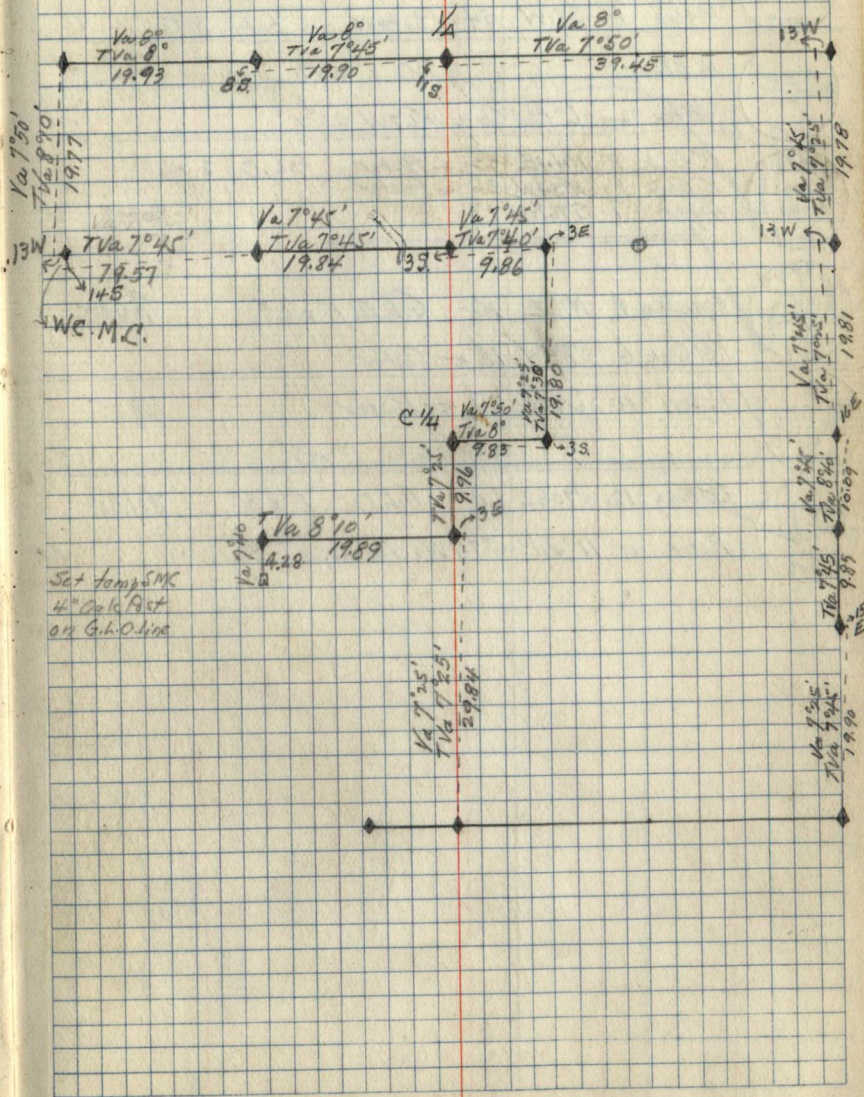 1/4
Va 8°
TVa 8°
19.93
8S.
Va 8°
TVa 7°45'
19.90
11S.
Va 8°
TVa 7°50'
39.45
13W
Va 7°50'
TVa 8°10'
19.77
Va 7°45'
TVa 7°25'
19.78
13W
TVa 7°45'
19.57
14S
WC. M.C.
Va 7°45'
TVa 7°45'
19.84
13S.
Va 7°45'
TVa 7°40'
9.86
3E
13W
Va 7°25'
TVa 7°30'
19.80
Va 7°45'
TVa 7°45'
19.81
C 1/4
Va 7°50'
TVa 8°
9.83
3S.
16E
TVa 7°25'
9.96
3E
Va 7°45'
TVa 8°10'
10.09
TVa 8°10'
19.89
Va 7°40'
4.28
TVa 7°45'
9.85
15E
Set temp SMC
4" Oak Post
on G.L.O. line
Va 7°25'
TVa 7°25'
29.84
Va 7°25'
TVa 7°45'
19.90